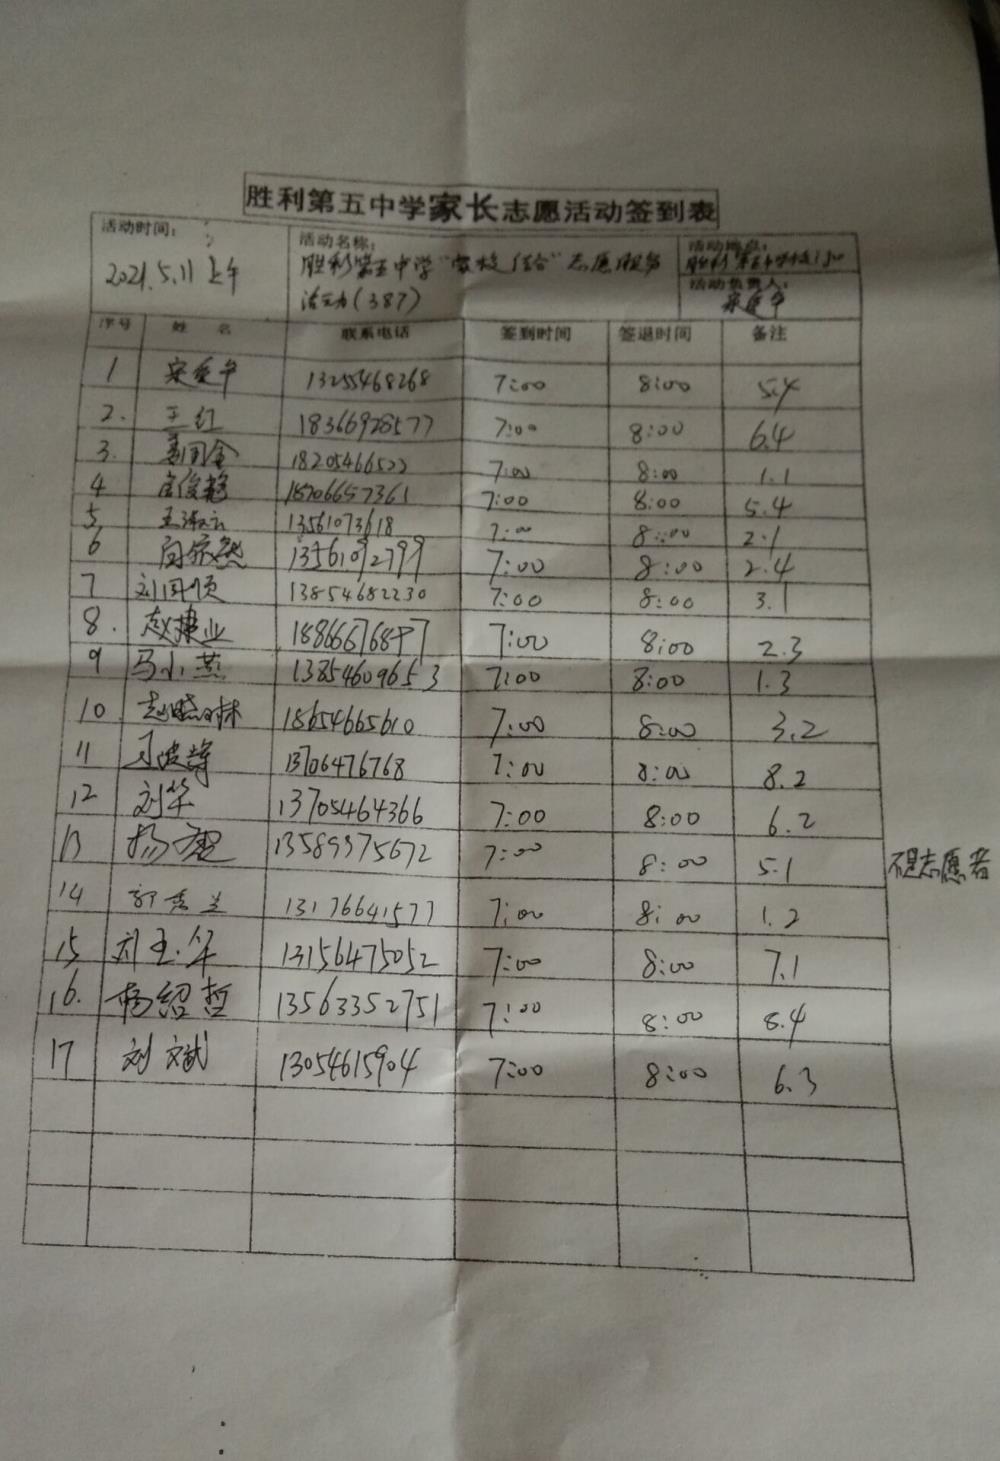 胜利第五中学家长志愿活动签到表
活动时间:
2021.5.11 上午
活动名称:
胜利第五中学"家校结合"志愿服务
活动(387)
活动地点:
胜利第五中学校门口
活动负责人:
序号 姓 名 联系电话 签到时间 签退时间 备注
1 13255468268 7:00 8:00 5.4
2. 王红 18366928577 7:00 8:00 6.4
3. 18205466522 7:00 8:00 1.1
4 18706657361 7:00 8:00 5.4
5. 13561073618 7:00 8:00 2.1
6 13561092799 7:00 8:00 2.4
7 刘国顺 13854682230 7:00 8:00 3.1
8. 赵捷业 7:00 8:00 2.3
9 马小燕 13854609653 7:00 8:00 1.3
10 18654665610 7:00 8:00 3.2
11 13706476768 7:00 8:00 8.2
12 刘华 13705464366 7:00 8:00 6.2
13 13589975672 7:00 8:00 5.1 不是志愿者
14 13176641577 7:00 8:00 1.2
15 刘玉华 13156475052 7:00 8:00 7.1
16. 杨绍哲 13563352751 7:00 8:00 8.4
17 刘文斌 13054615904 7:00 8:00 6.3